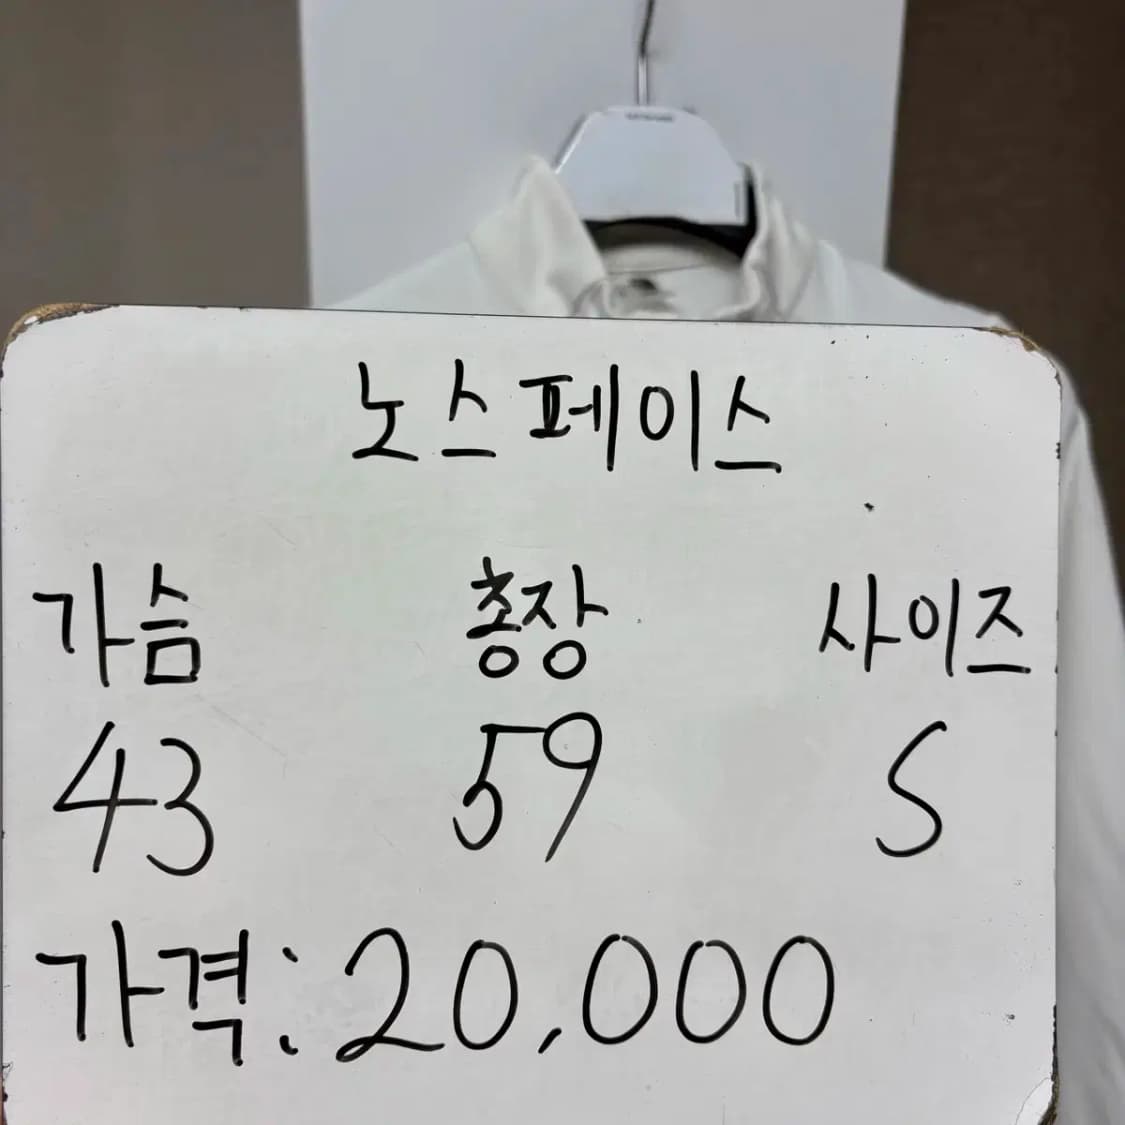 노스페이스
가슴 총장 사이즈
43 59 S
가격:20,000